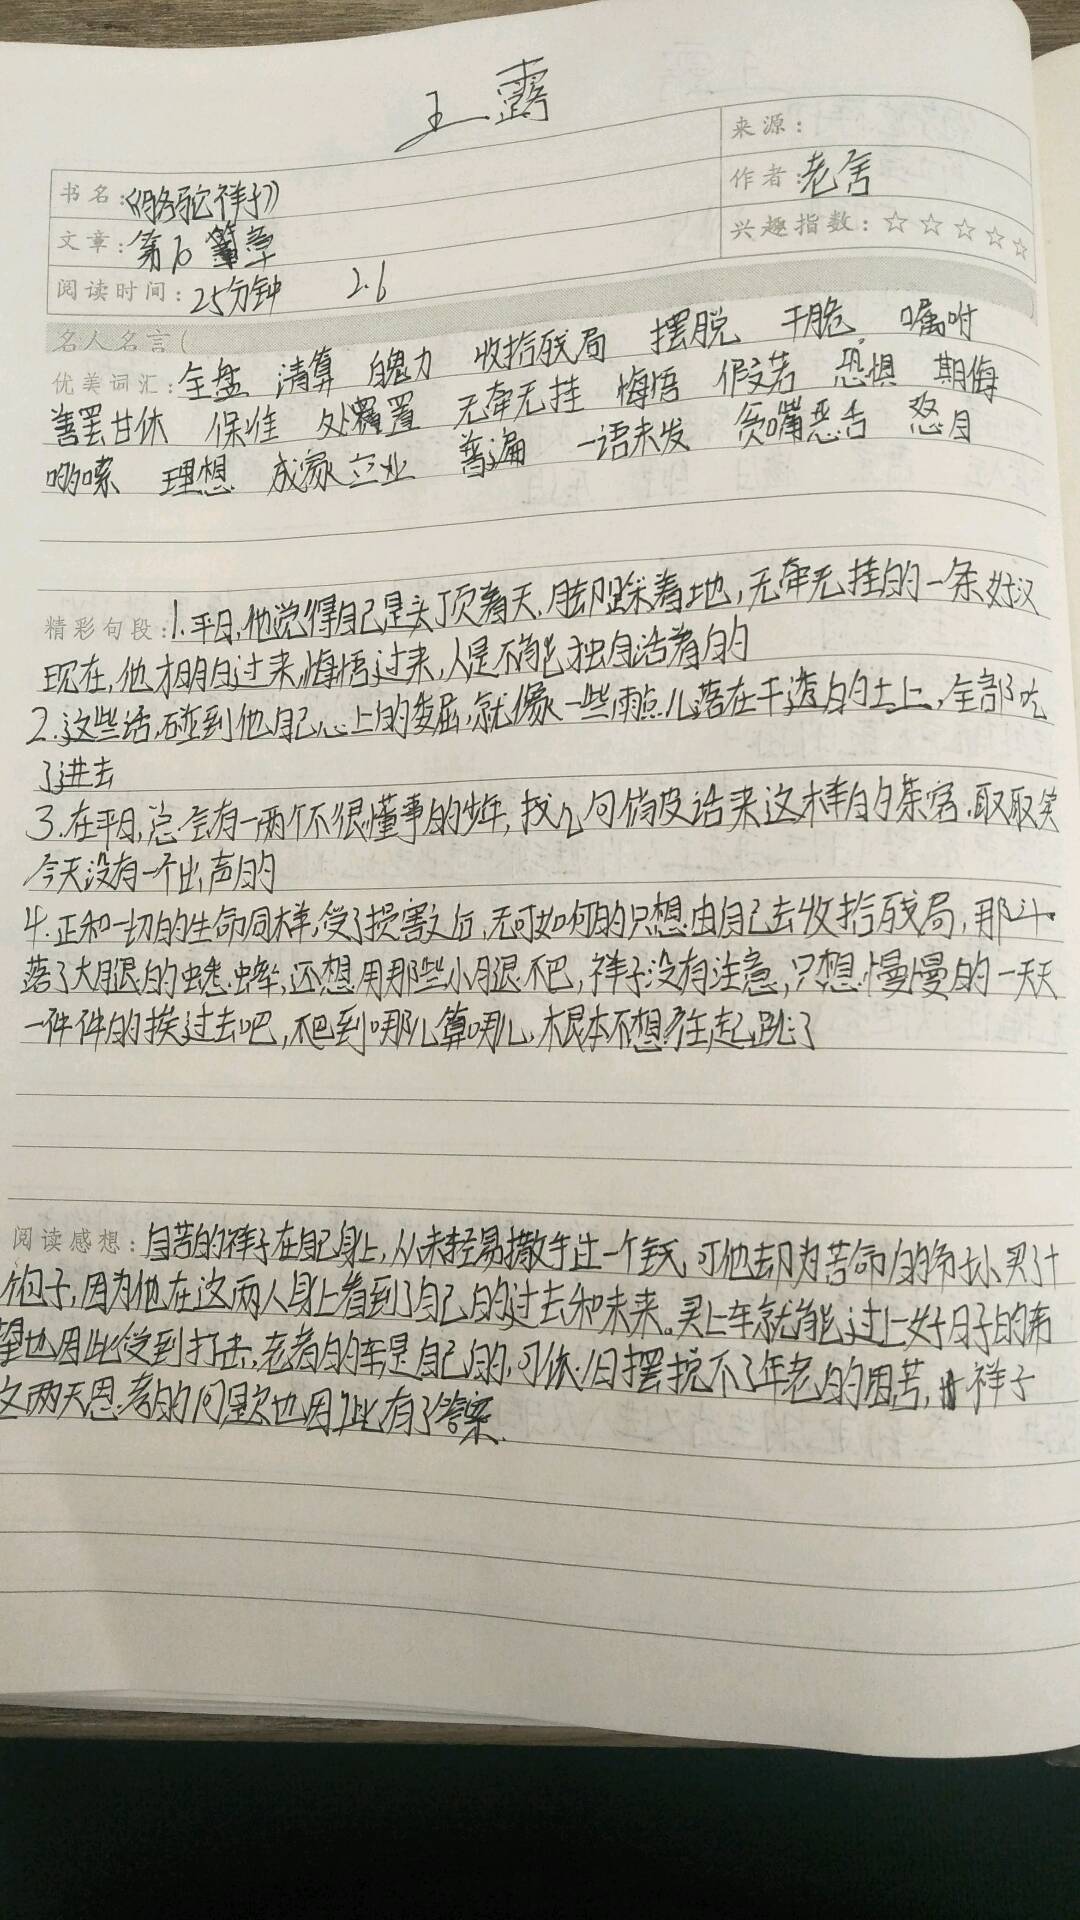 王露
来源:
书名:《骆驼祥子》
作者:老舍
文章:第10章
兴趣指数:☆☆☆☆☆
阅读时间:25分钟 2.6
名人名言(
优美词汇:全盘 清算 魄力 收拾残局 摆脱 干脆 嘱咐
善罢甘休 保准 处置 无牵无挂 悔悟 假若 恐惧 期侮
哆嗦 理想 成家立业 普遍 一语未发 贫嘴恶舌 怒目
精彩句段:1.平日,他觉得自己是头顶着天,脚踩着地,无牵无挂的一条好汉
现在,他才明白过来,悔悟过来,人是不能独自活着的
2.这些话,碰到他自己心上的委屈,就像一些雨点儿落在干透的土上,全部吃
了进去
3.在平日,总会有一两个不很懂事的少年,找几句俏皮话来这样的茶客,取取笑
今天没有一个出声的
4.正和一切的生命同样,受了损害之后,无可如何的只想由自己去收拾残局,那斗
落了大腿的蟋蟀,还想用那些小腿爬,祥子没有注意,只想慢慢的一天天
一件件的挨过去吧,爬到哪儿算哪儿,根本不想往起跳了
阅读感想:自苦的祥子在自己身上,从未轻易撒手出一个钱,可他却为苦命的 买了十
个包子,因为他在这两人身上看到了自己的过去和未来。买上车就能过上好日子的希
望也因此受到打击,老者的车是自己的,可依旧摆挩不了年老的困苦,祥子
这两天思考的问题也因此有了答案.